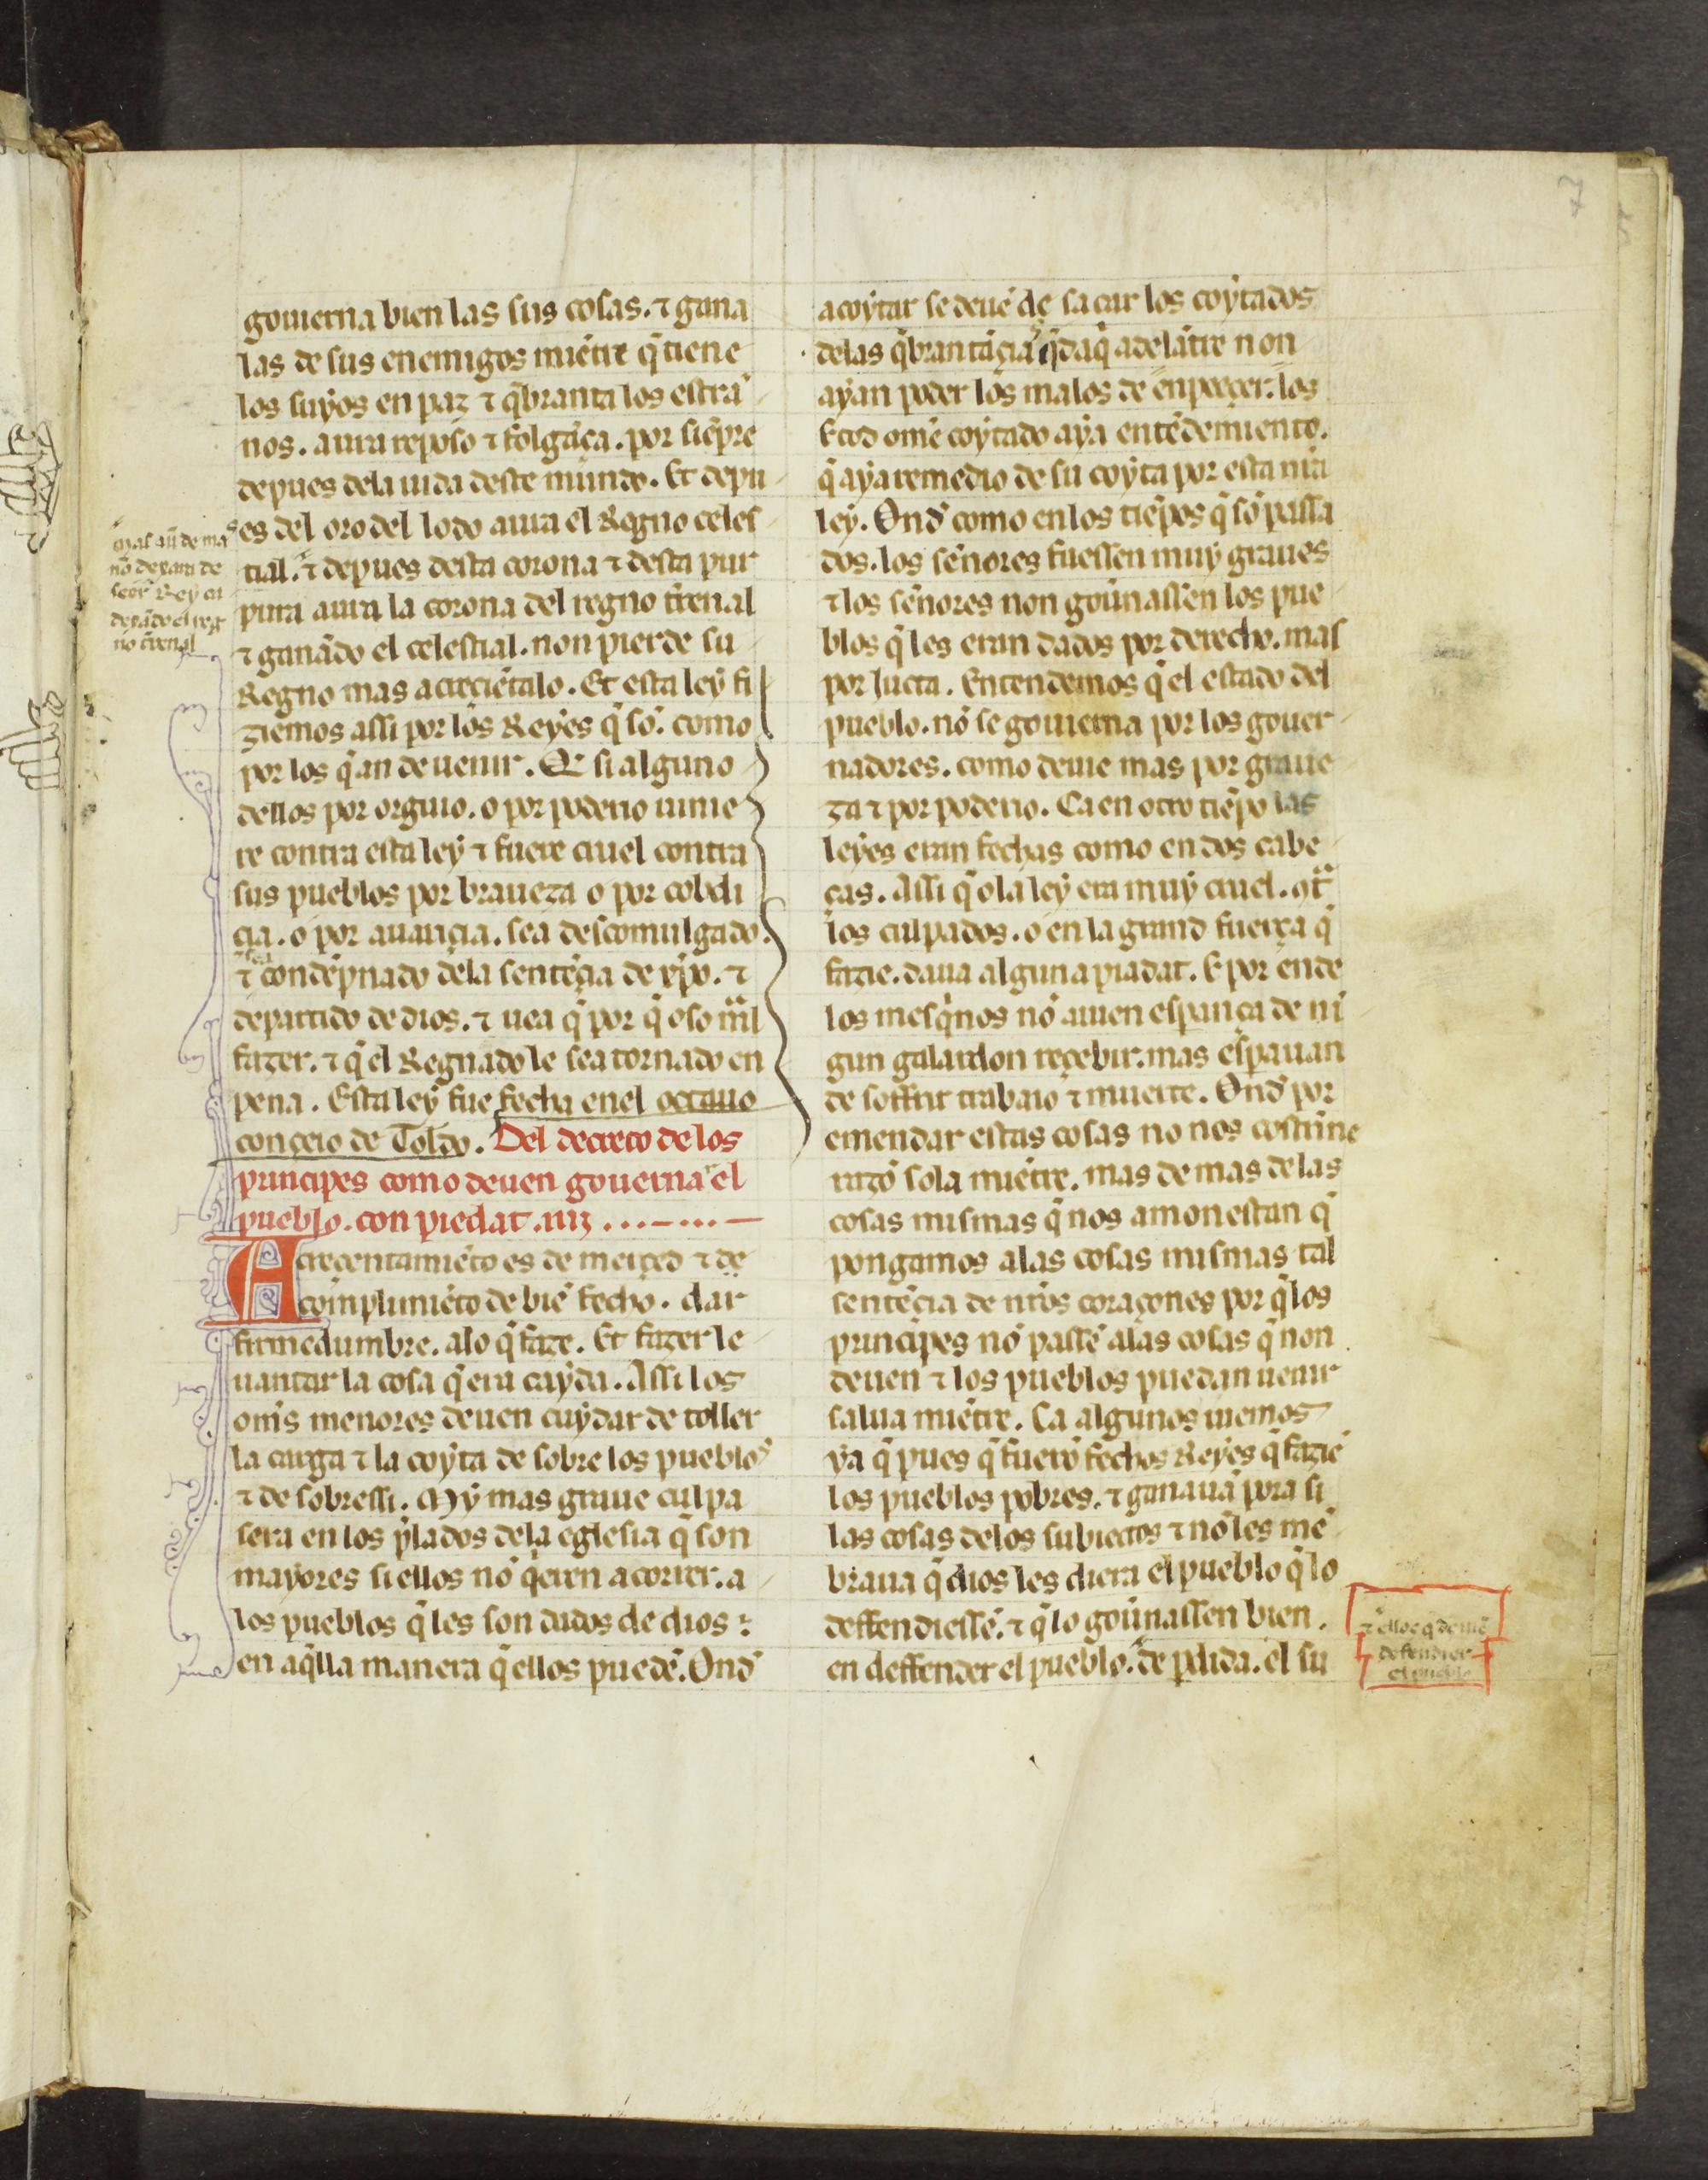 7
gouierna bien las sus cosas. ⁊ gana
las de sus enemigos miẽtre q̃ tiene
los suyos en paz ⁊ q̃branta los estra
nos. aura reposo ⁊ folgãça. por siẽpre
depues dela uida deste mundo. Et depu
es del oro del lodo aura el Regno celes
tial. ⁊ depues desta corona ⁊ desta pur
pura aura la corona del regno t̃renal
⁊ ganãdo el celestial. non pierde su
Regno mas acreciẽtalo. Et esta ley fi
ziemos assi por los Reyes q̃ sõ. como
por los q̃ an de uenir. Et si alguno
dellos por orguio. o por poderio uinie
re contra esta ley ⁊ fuere cruel contra
sus pueblos por braueza o por cobdi
cia. o por auaricia. sea descomulgado.
⁊ sea condẽpnado dela sentẽcia de xp̃o. ⁊
departido de dios. ⁊ uea q̃ por q̃ oso mal
fazer. ⁊ q̃ el Regnado le sea tornado en
pena. Esta ley fue fecha enel octauo
conceio de Toldo. Del decreto de los
principes como deuen gouernar el
pueblo. con piedat. iiij
Acrecentamiẽto es de merced ⁊ de
complimiẽto de biẽ fecho. dar
firmedumbre. alo q̃ faze. Et fazer le
uantar la cosa q̃ era cayda. Assi los
om̃s menores deuen cuydar de toller
la carga ⁊ la coyta de sobre los pueblos
⁊ de sobressi. Mỹ mas graue culpa
sera en los p̃lados dela eglesia q̃ son
mayores si ellos nõ q̃ieren acorrer. a
los pueblos q̃ les son dados de dios ⁊
en aq̃lla manera q̃ ellos puedẽ. Ond̃
mas aũ de ma
nõ dexara de
seer Rey ca
dexãdo el reg
no t̃renal
acoytar se deuẽ de sacar los coytados
delas q̃brantãcias q̃ daq̃ adelãtre non
ayan poder los malos de enpeeçer. los
E tod omẽ coytado aya entẽdemiento.
q̃ aya remedio de su coyta por esta nr̃a
ley. Ond̃ como en los tiẽpos q̃ sõ passa
dos. los señores fuessen muy graues
⁊ los señores non gou̾nassen los pue
blos q̃ les eran dados por derecho. mas
por lucta. Entendemos q̃ el estado del
pueblo. nõ se gouierna por los gouer
nadores. como deuie mas por graue
za ⁊ por poderio. Ca en otro tiẽpo las
leyes eran fechas como en dos cabe
ças. Assi q̃ o la ley era muy cruel. ꝯtra
los culpados. o en la grand fuerça q̃
fazie. daua alguna piadat. E por ende
los mesq̃nos nõ auien esp̃ança de ni
gun galardon reçebir. mas esp̃auan
de soffrir trabaio ⁊ muerte. Ond̃ por
emendar estas cosas no nos costrine
razõ sola miẽtre. mas de mas de las
cosas mismas q̃ nos amonestan q̃
pongamos a las cosas mismas tal
sentẽcia de nr̃os coraçones por q̃ los
principes nõ passẽ alas cosas q̃ non
deuen ⁊ los pueblos puedan uenir
salua miẽtre. Ca algunos uiemos
ya q̃ pues q̃ fuerõ fechos Reyes q̃ faziẽ
los pueblos pobres. ⁊ ganauã pora si
las cosas delos subiectos ⁊ nõ les mẽ
braua q̃ dios les diera el pueblo q̃ lo
deffendiessẽ. ⁊ q̃ lo gou̾nassen bien.
en deffender el pueblo. de p̃dida. el su
⁊ elloc q̃ deuiẽ
defender
el pueblo